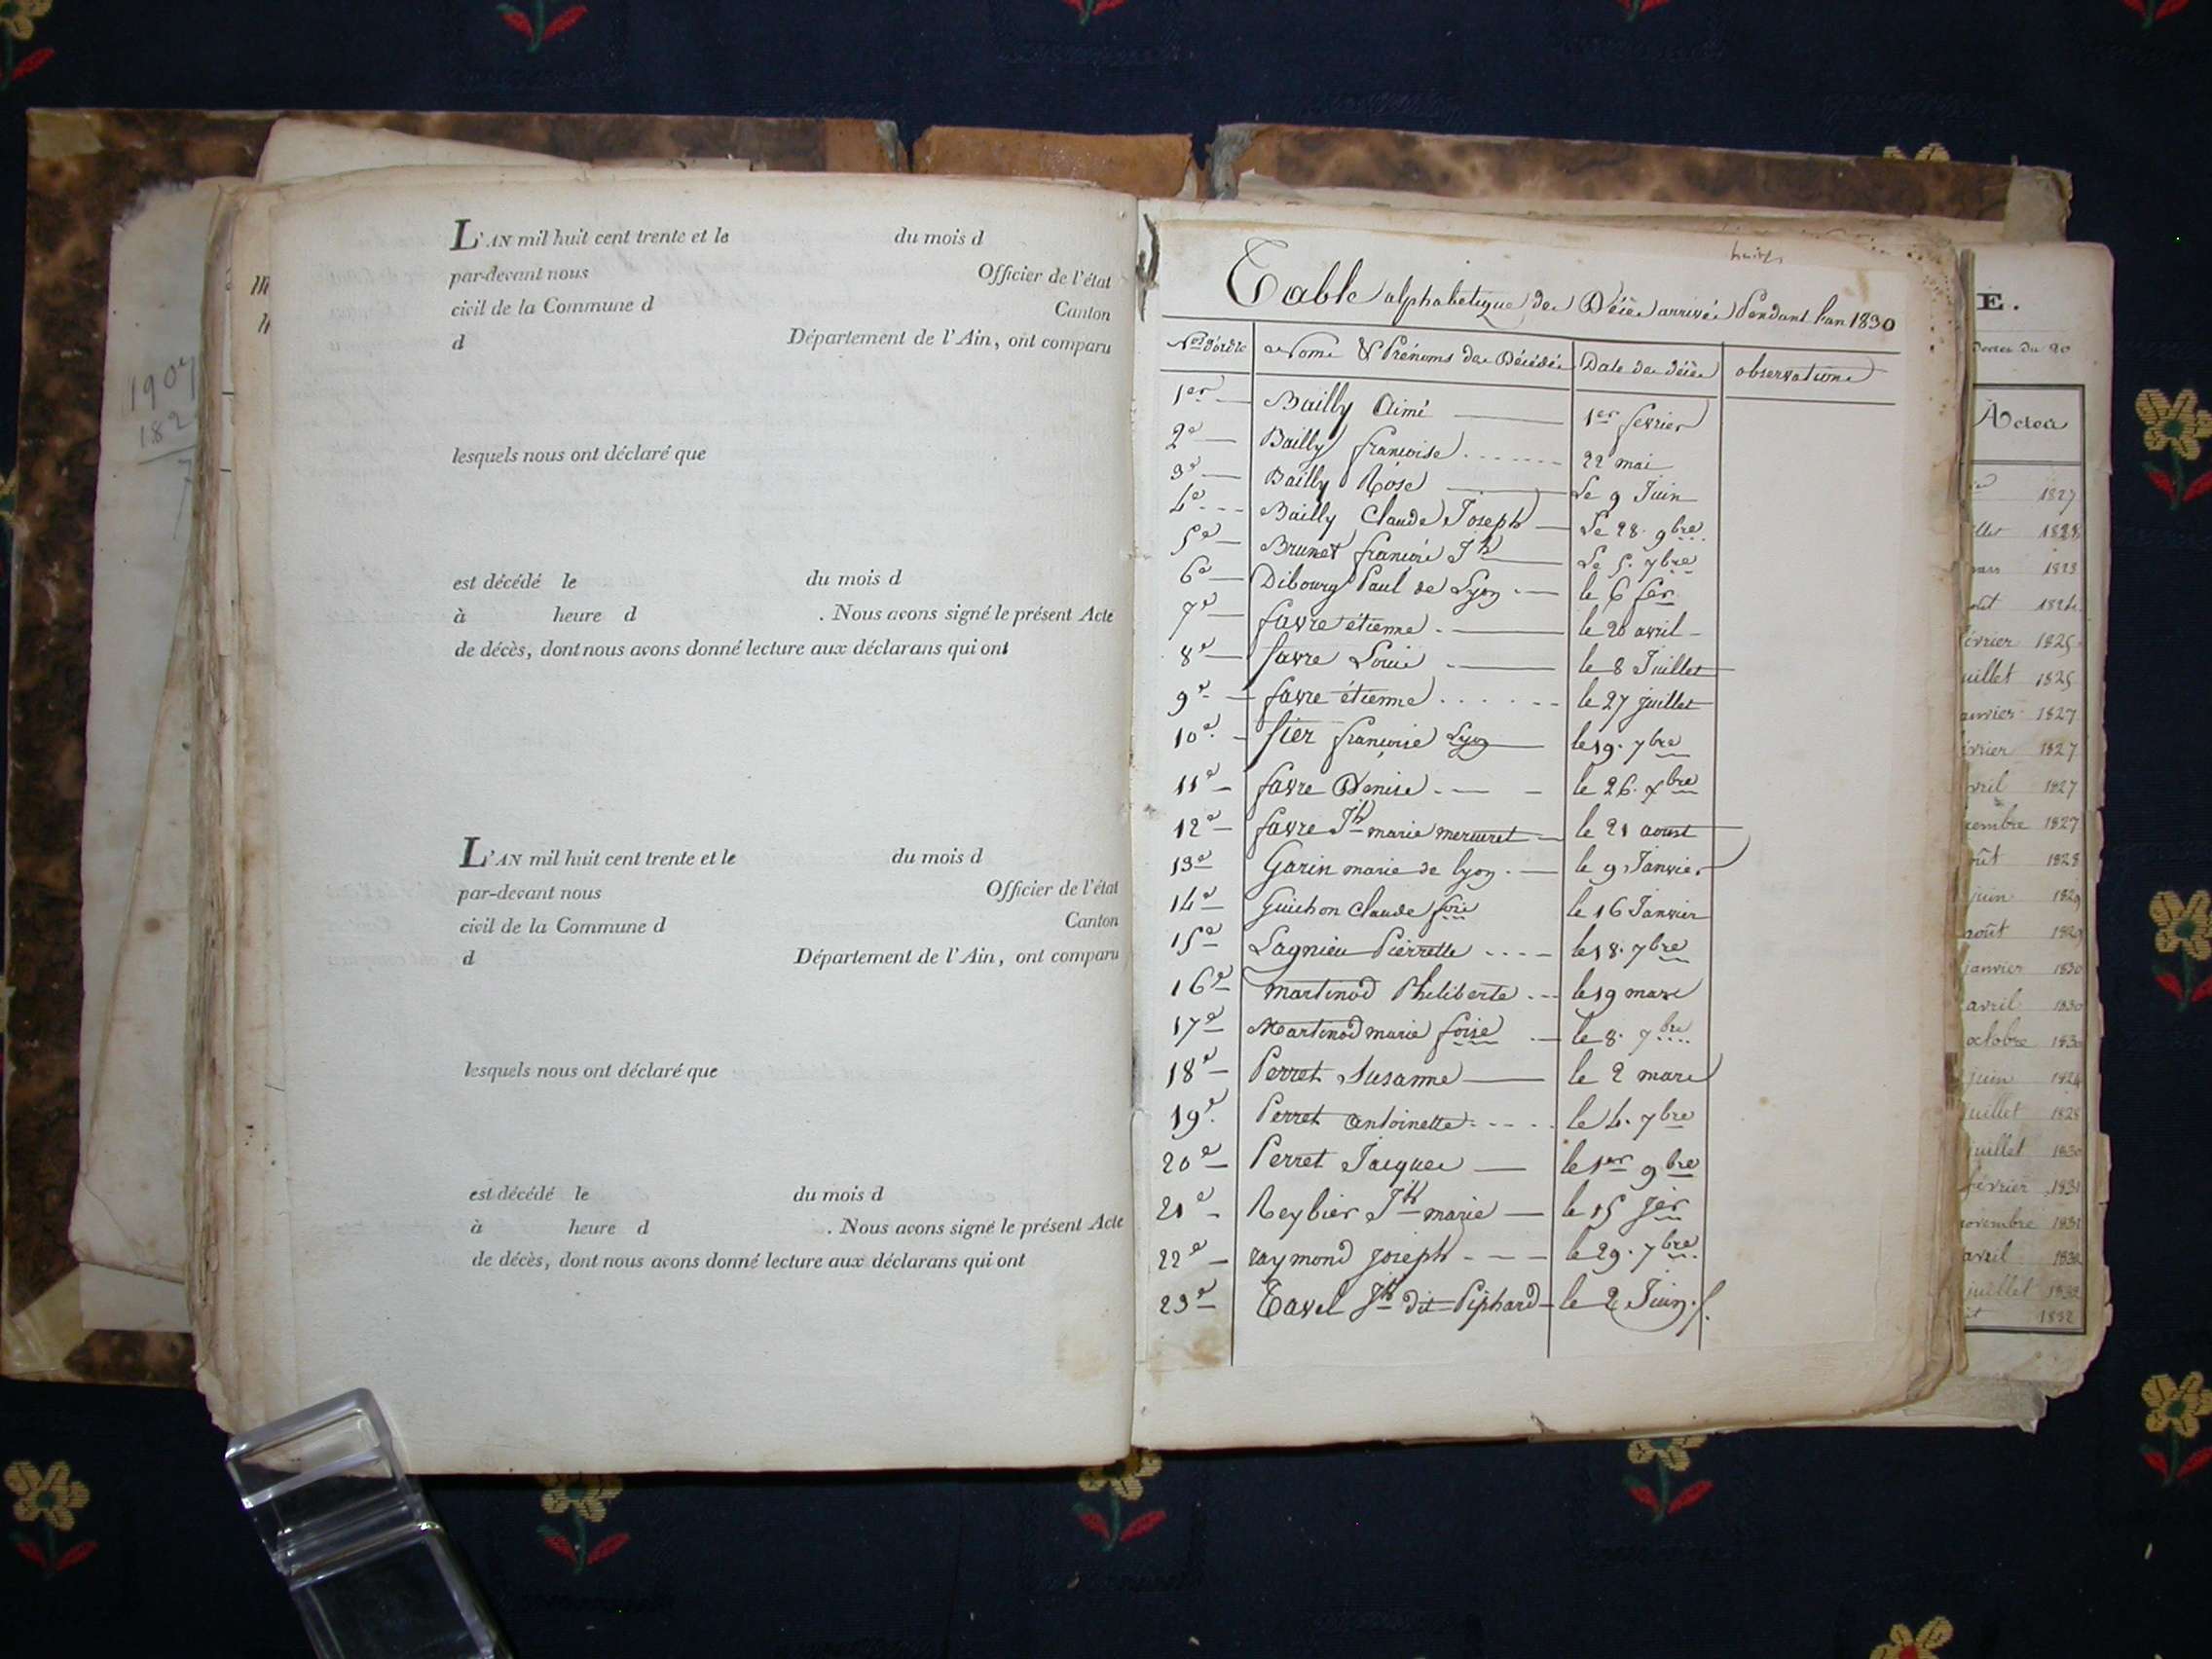 L'AN mil huit cent trente et le du mois d
par-devant nous Officier de l'état
civil de la Commune d Canton
d Département de l'Ain, ont comparu
lesquels nous ont déclaré que
est décédé le du mois d
à heure d . Nous avons signé le présent Acte
de décès, dont nous avons donné lecture aux déclarans qui ont
L'AN mil huit cent trente et le du mois d
par-devant nous Officier de l'état
civil de la Commune d Canton
d Département de l'Ain, ont comparu
lesquels nous ont déclaré que
est décédé le du mois d
à heure d . Nous avons signé le présent Acte
de décès, dont nous avons donné lecture aux déclarans qui ont
190
182
Table alphabetique des Décès arrivés Pendant l'an 1830
Nos d'ordre Noms & Prénoms des Décédés Date des décès observations
1er Bailly Aimé 1er fevrier
2e Bailly françoise 22 mai
3e Bailly Rose Le 9 Juin
4e Bailly Claude Joseph Le 28. 9bre
5e Brunet françois Jh Le 5. 7bre
6e Dibourg Paul de Lyon le 6 fer
7e favre étienne le 20 avril
8e favre Louis le 8 Juillet
9e favre étienne le 27 juillet
10e fier françoise Lyon le 19. 7bre
11e favre Denise le 26. xbre
12e favre Jh marie mercuret le 21 aoust
13e Garin marie de lyon le 9 Janvier
14e Guichon Claude fois le 16 Janvier
15e Lagnieu Pierrette le 18. 7bre
16e martinod Philiberte le 19 mars
17e Martinod marie foise le 8. 7bre
18e Perret Susanne le 2 mars
19e Perret antoinette le 4. 7bre
20e Perret Jacques le 1er 9bre
21e Reybier Jh marie le 15 Jer
22e raymond joseph le 29. 7bre
23e Tavel Jh dit Piphard le 2 Juin
E.
Actes
1827
1823
1824
février 1825
juillet 1825
janvier 1827
février 1827
avril 1827
1827
août 1828
juin 1829
août 1829
janvier 1830
avril 1830
octobre 1830
juin 1824
juillet 1828
juillet 1830
février 1831
novembre 1831
avril 1832
juillet 1832
1832